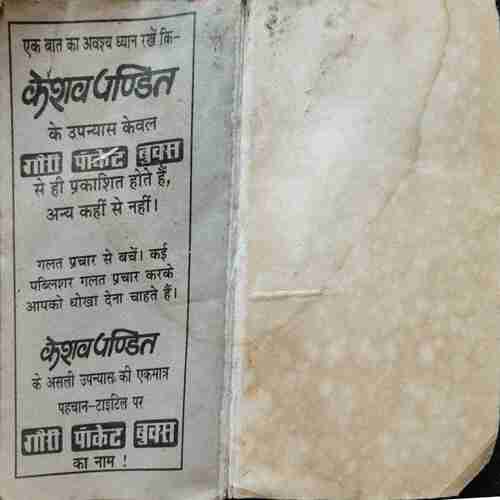 एक बात का अवश्य ध्यान रखें कि-
केशव पण्डित
के उपन्यास केवल
गौरी पॉकेट बुक्स
से ही प्रकाशित होते हैं,
अन्य कहीं से नहीं।
गलत प्रचार से बचें। कई
पब्लिशर गलत प्रचार करके
आपको धोखा देना चाहते हैं।
केशव पण्डित
के असली उपन्यास की एकमात्र
पहचान-टाइटिल पर
गौरी पॉकेट बुक्स
का नाम !